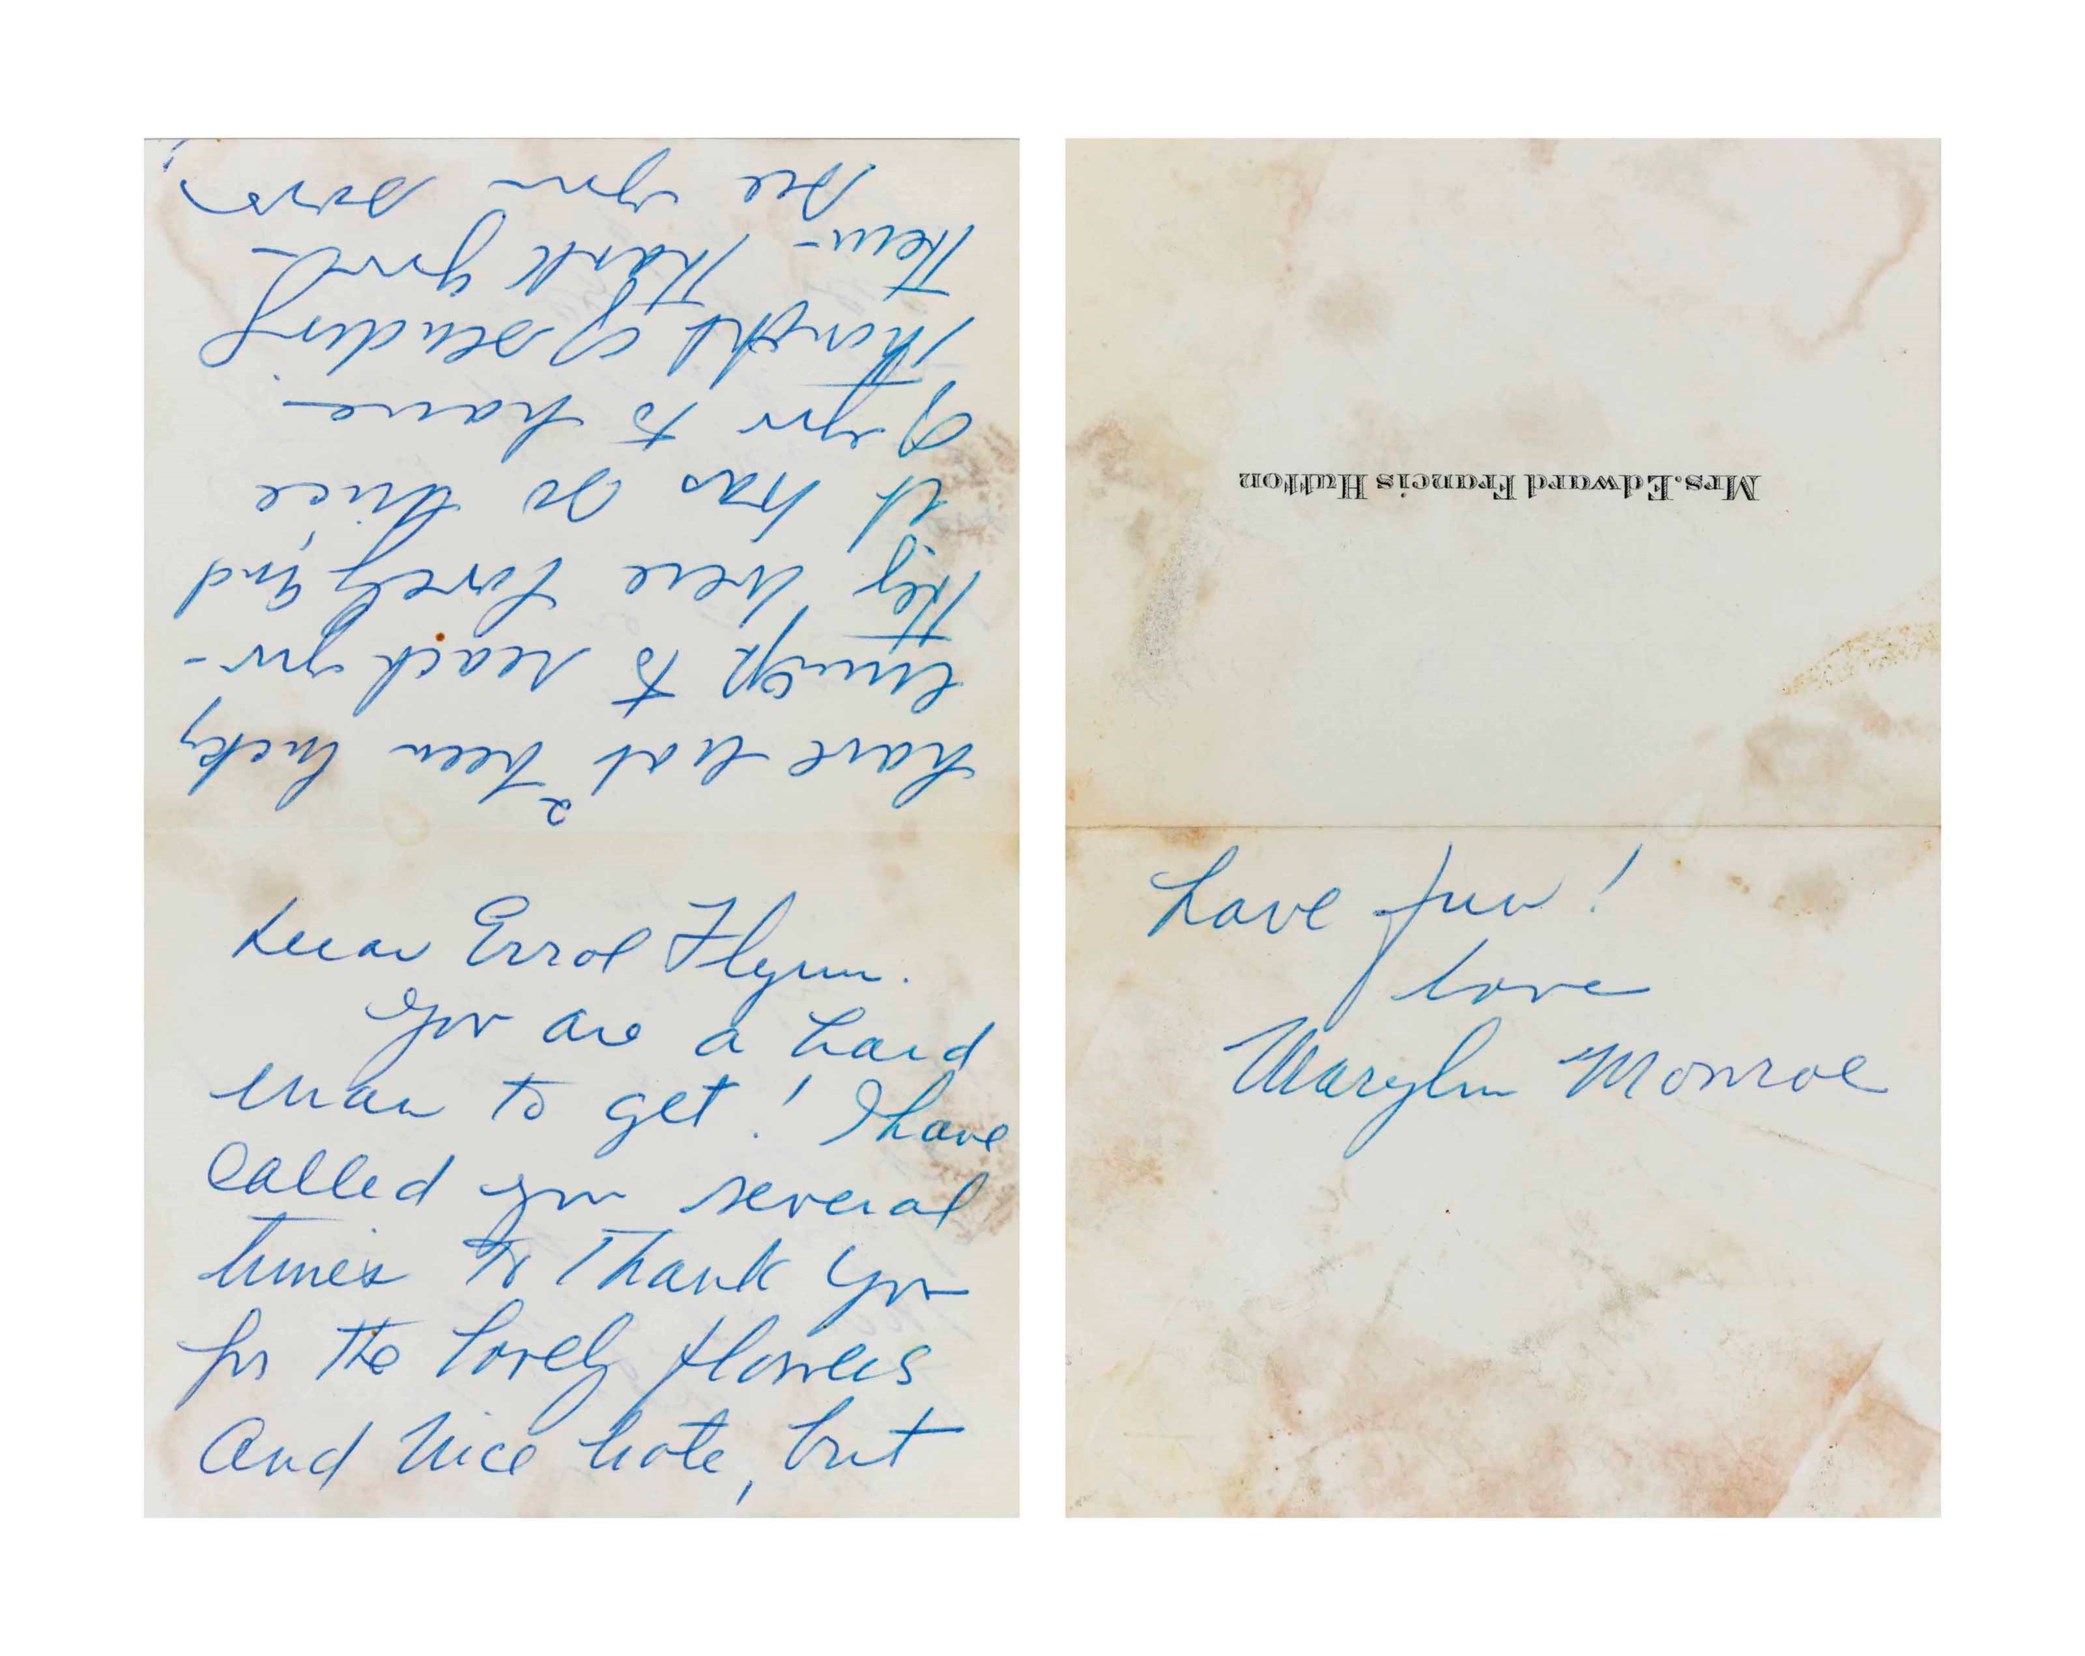 Mrs. Edward Francis Hutton
Dear Errol Flynn.
You are a hard
man to get! I have
called you several
times to Thank You
for the lovely flowers
And Nice note, but
2
have not been lucky
enough to reach you -
they were lovely and
it was so nice
of you to have
thought of sending
them - thank you -
see you soon
have fun!
Love
Marylin Monroe